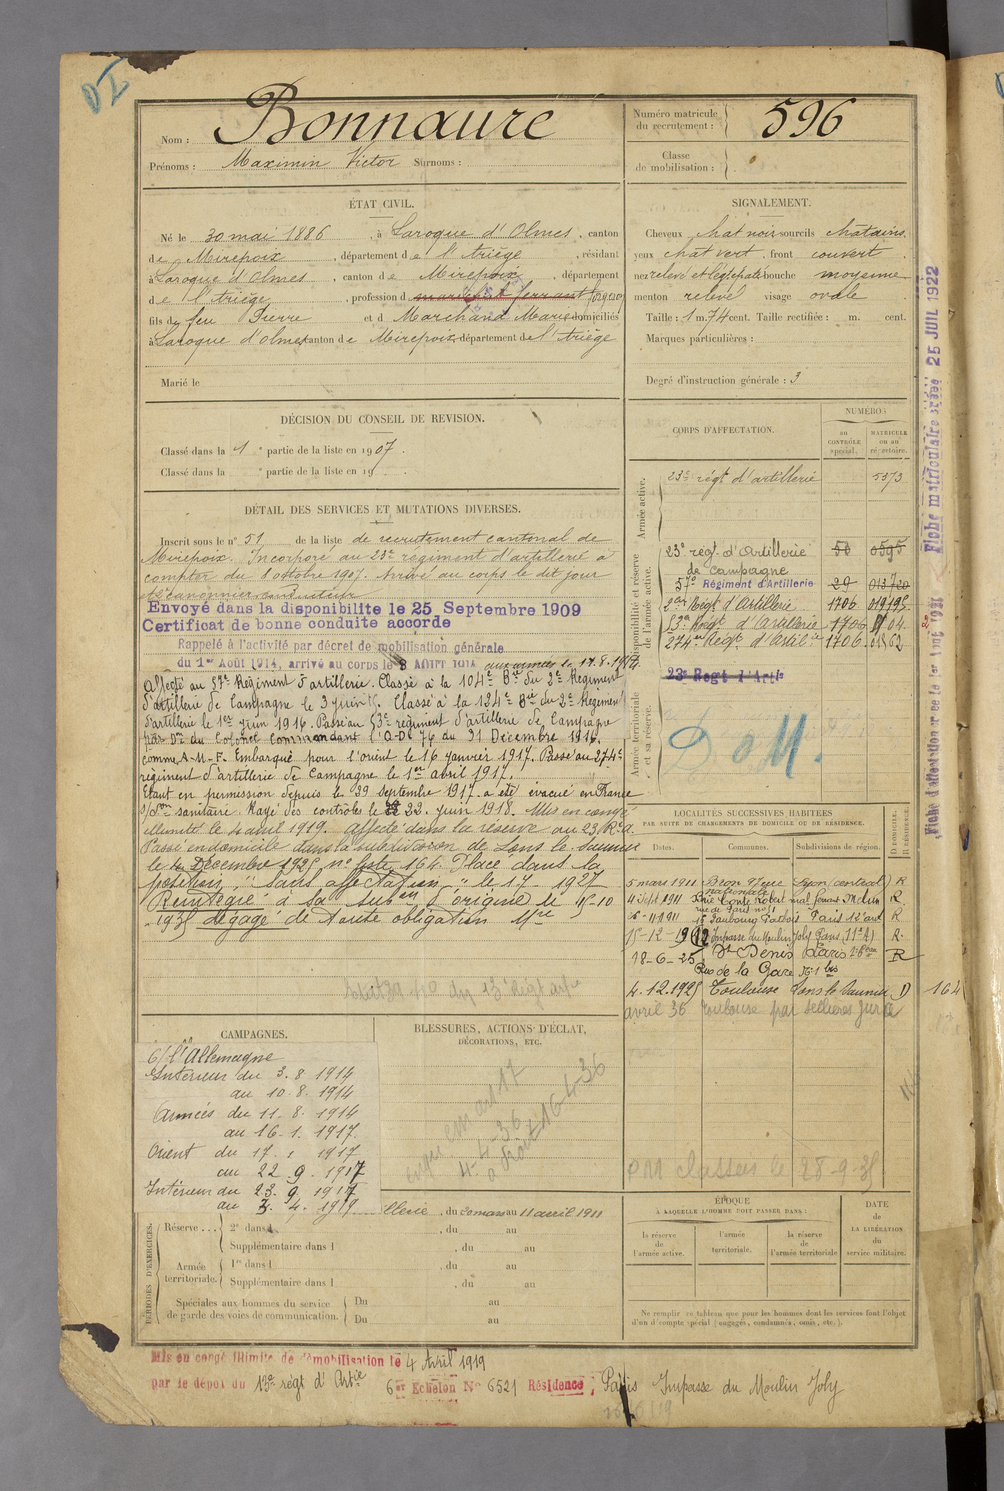 DI
Nom : Bonnaure
Prénoms : Maximin Victor Surnoms :
Numéro matricule du recrutement : 596
Classe de mobilisation :
ÉTAT CIVIL.
Né le 30 mai 1886, à Laroque d'Olmes, canton
de Mirepoix, département de l'Ariège, résidant
à Laroque d'Olmes, canton de Mirepoix, département
de l'Ariège, profession de maréchal ferrant forgeron
fils de feu Pierre et d Marchand Marie domiciliés
à Laroque d'Olmes canton de Mirepoix département de l'Ariège
Marié le
SIGNALEMENT.
Cheveux chat noir sourcils chatains
yeux chat vert, front couvert
nez relevé et bouche moyenne
menton relevé visage ovale
Taille : 1 m. 74 cent. Taille rectifiée : m. cent.
Marques particulières :
Degré d'instruction générale : 3
DÉCISION DU CONSEIL DE REVISION.
Classé dans la 1e partie de la liste en 1907.
Classé dans la e partie de la liste en 19
DÉTAIL DES SERVICES ET MUTATIONS DIVERSES.
Inscrit sous le n° 51 de la liste de recrutement cantonal de
Mirepoix. Incorporé au 23e régiment d'artillerie à
compter du 8 octobre 1907. Arrivé au corps le dit jour
et 2e canonnier conducteur
Envoyé dans la disponibilite le 25 Septembre 1909
Certificat de bonne conduite accorde
Rappelé à l'activité par décret de mobilisation générale
du 1er Août 1914, arrivé au corps le 3 AOUT 1914 aux armées le 11.8.1914.
Affecté au 57e Régiment d'artillerie. Classé à la 104e Bie du 2e Régiment
d'artillerie de Campagne le 3 juin 15. Classé à la 124e Bie du 2e Régiment
d'artillerie le 1er juin 1916. Passé au 53e régiment d'artillerie de Campagne
par Don du Colonel Commandant l'A-D 76 du 31 Décembre 1916.
comme A-M-F. Embarqué pour l'orient le 16 janvier 1917. Passé au 274e
régiment d'artillerie de Campagne le 1er avril 1917.
Etant en permission depuis le 29 septembre 1917. a été évacué en France
s/don sanitaire. Rayé des contrôles le 22 juin 1918. Mis en congé
illimité le 4 avril 1919. affecté dans la réserve au 23e R.a.
Passé en domicile dans la subdivision de Lons le Saunier
le 4 Décembre 1925 n° liste 164. Placé dans la
position "Sans affectation" le 17 - 1927
Réintégré à sa subon d'origine le 15-10
1935 dégagé de toute obligation Mre
CORPS D'AFFECTATION.
NUMÉROS
au CONTRÔLE spécial.
MATRICULE ou au répertoire.
Armée active.
23e régt d'artillerie 5573
Disponibilité et réserve de l'armée active.
23e régt d'Artillerie 50 0595
de campagne
57e Régiment d'Artillerie 29 013720
2e Régt d'Artillerie 1706 019195
53e Régt d'Artillerie 1706 04
274e Régt d'Artie 1706 62
Armée territoriale et sa réserve.
23e Regt d'Artie
D O M.
LOCALITÉS SUCCESSIVES HABITÉES
PAR SUITE DE CHANGEMENTS DE DOMICILE OU DE RÉSIDENCE.
Dates. Communes. Subdivisions de région. D DOMICILE. R RÉSIDENCE.
5 mars 1911 Bron Lyon (central) R
4 Sept 1911 Brie Comte Robert Melun R
rue de Paris n° 1
16-11-1911 15 Faubourg Paris 12e art R
15-12-1912 12 Impasse du Moulin Joly Paris (11e A) R
18-6-25 St Denis Paris R
Rue de la Gare N° 1 bis
4.12.1925 Toulouse Lons le Saunier D 164
avril 36 Toulouse par Sellières Jura
PM classée le 28-9-35
Fiche d'affectation créée le 1er Aout 1921
Fiche matriculaire créée 25 JUIL 1922
CAMPAGNES.
C/ l'Allemagne
Intérieur du 3.8.1914
au 10.8.1914
Armées du 11.8.1914
au 16.1.1917.
Orient du 17.1 1917
au 22.9.1917
Intérieur du 23.9.1917
au 3.4.1919
BLESSURES, ACTIONS D'ÉCLAT,
DÉCORATIONS, ETC.
4-4-36
16-4-36
PÉRIODES D'EXERCICES.
llerie, du au 11 avril 1911
Réserve ... 2e dans l , du au
Supplémentaire dans l , du au
Armée territoriale. 1re dans l , du au
Supplémentaire dans l , du au
Spéciales aux hommes du service de garde des voies de communication. Du au
Du au
ÉPOQUE
À LAQUELLE L'HOMME DOIT PASSER DANS :
la réserve de l'armée active.
l'armée territoriale.
la réserve de l'armée territoriale
DATE DE LA LIBÉRATION du service militaire.
Ne remplir ce tableau que pour les hommes dont les services font l'objet
d'un décompte spécial (engagés, condamnés, omis, etc.).
Mis en congé illimité de démobilisation le 4 Avril 1919
par le dépôt du 13e régt d'Artie 6e Echelon N° 6521 Résidence : Paris Impasse du Moulin Joly